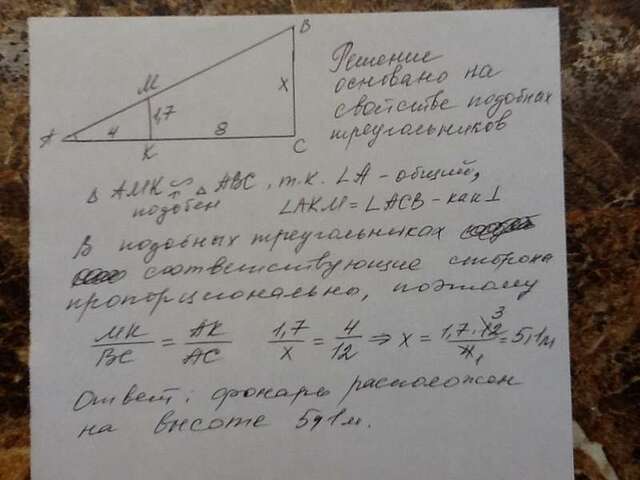 B
Решение
основано на
свойстве подобных
треугольников
M
x
1,7
A 4 K 8 C
Δ AMK ∽ Δ ABC, т.к. ∠A - общий,
подобен ∠AKM = ∠ACB - как ⊥
В подобных треугольниках
соответствующие стороны
пропорциональны, поэтому
MK/BC = AK/AC 1,7/x = 4/12 ⇒ x = 1,7·12/4 = 5,1м
3
1
Ответ: фонарь расположен
на высоте 5,1м.